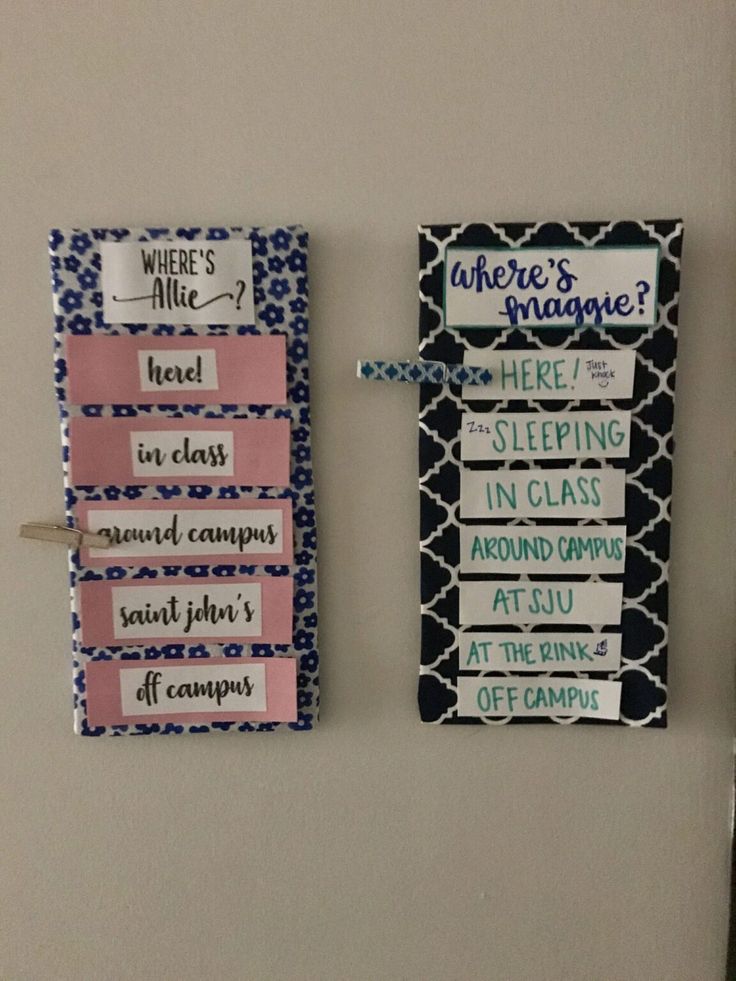 WHERE'S
Allie?
here!
in class
around campus
saint john's
off campus
where's
maggie?
HERE! Just knock
Zzz SLEEPING
IN CLASS
AROUND CAMPUS
AT SJU
AT THE RINK
OFF CAMPUS